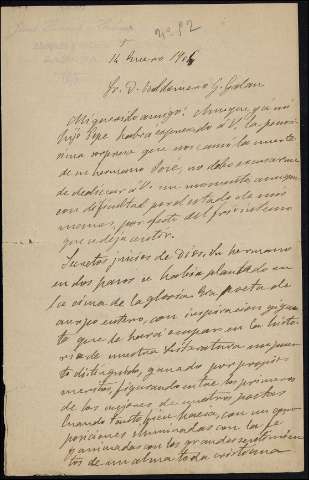 nº 82
14 Enero 1905
Sr. D. Baldomero G. Galan
Mi querido amigo: Aunque ya mi
hijo Pepe habrá expresado á V. la
que nos causó la muerte
de su hermano José, no debo excusarme
de dedicar á V. un momento aunque
con dificultad por el estado de mis
manos, por efecto del frio
que se deja sentir.
Secretos juicios de Dios. Su hermano
en dos pasos se habia plantado en
la cima de la gloria. Era poeta de
cuerpo entero, con inspiracion gigan
te que le hará ocupar en la histo
ria de nuestra literatura un puesto
distinguido, ganado por propios
meritos, figurando entre los primeros
de los mejores de nuestros poetas
Cuando tanto bien hacia, con sus com
posiciones iluminadas con la fe
y animadas con los grandes sentimien
tos de un alma toda cristiana